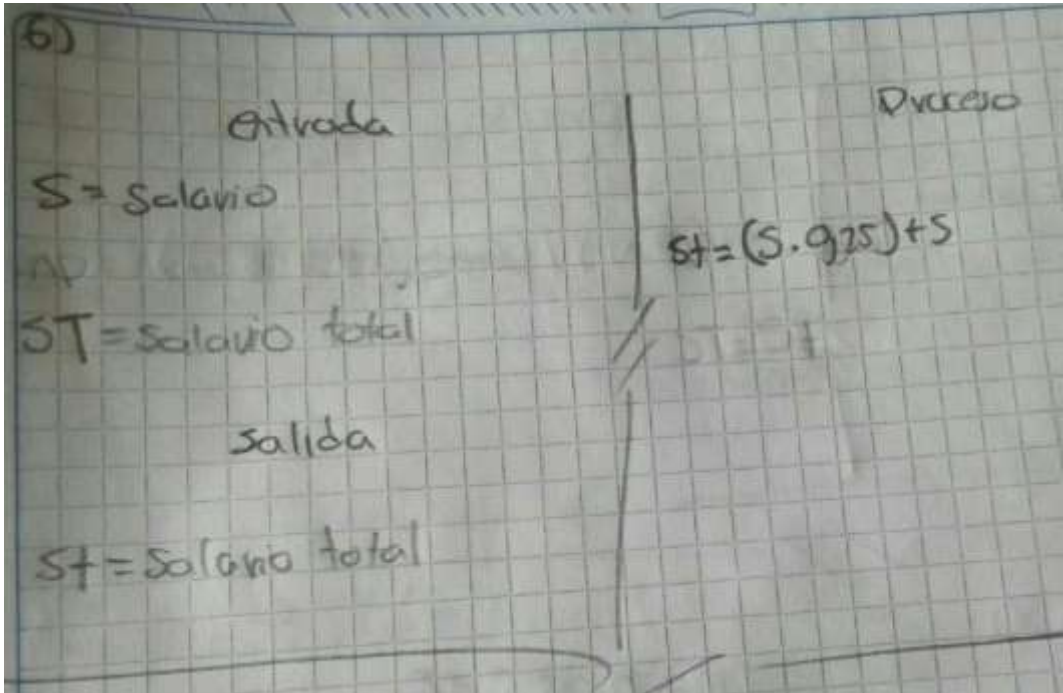 6)
entrada
S = Salario
ST = Salario total
salida
St = Salario total
Proceso
St = (S . 925) + S